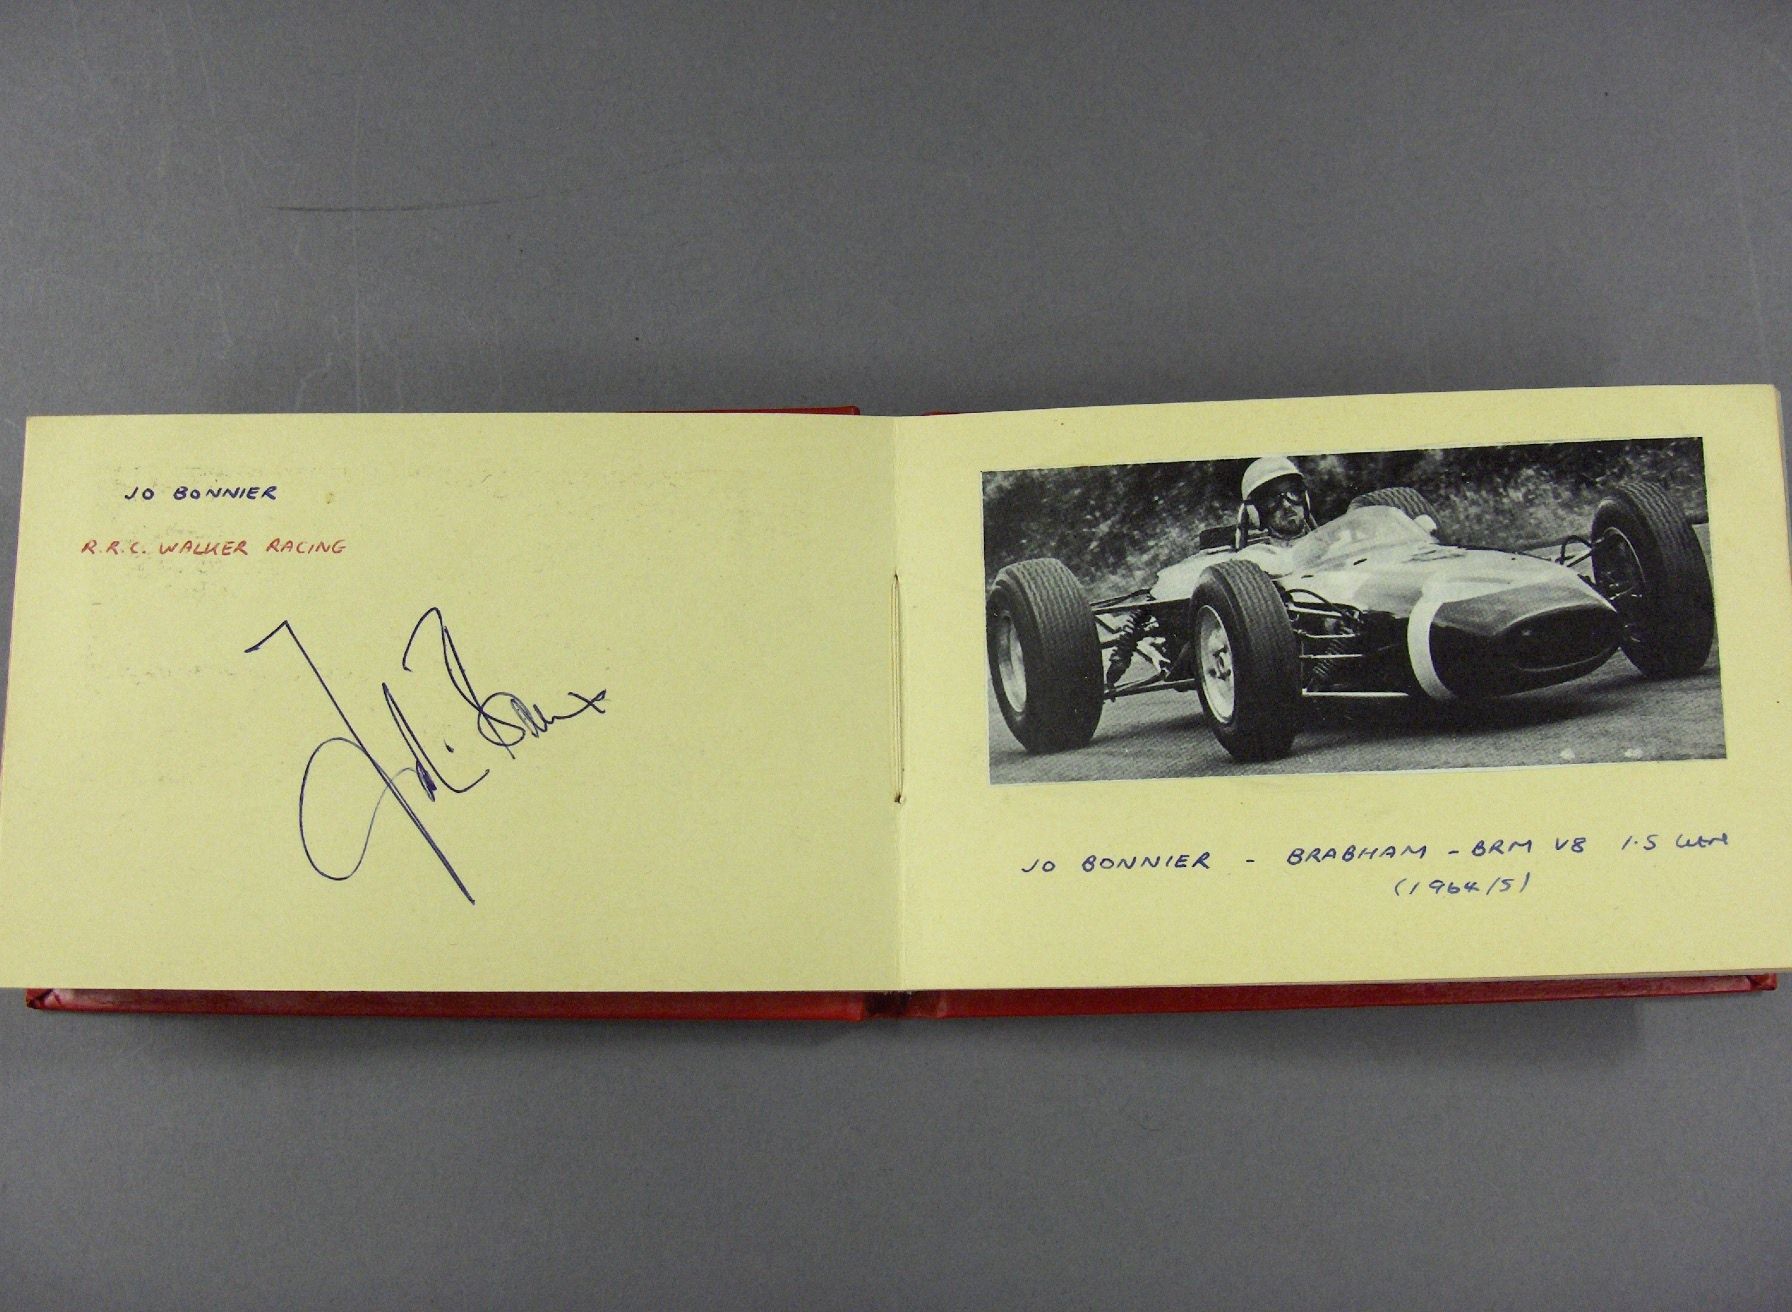 JO BONNIER
R.R.C. WALKER RACING
JO BONNIER - BRABHAM - BRM V8 1.5
(1964/5)